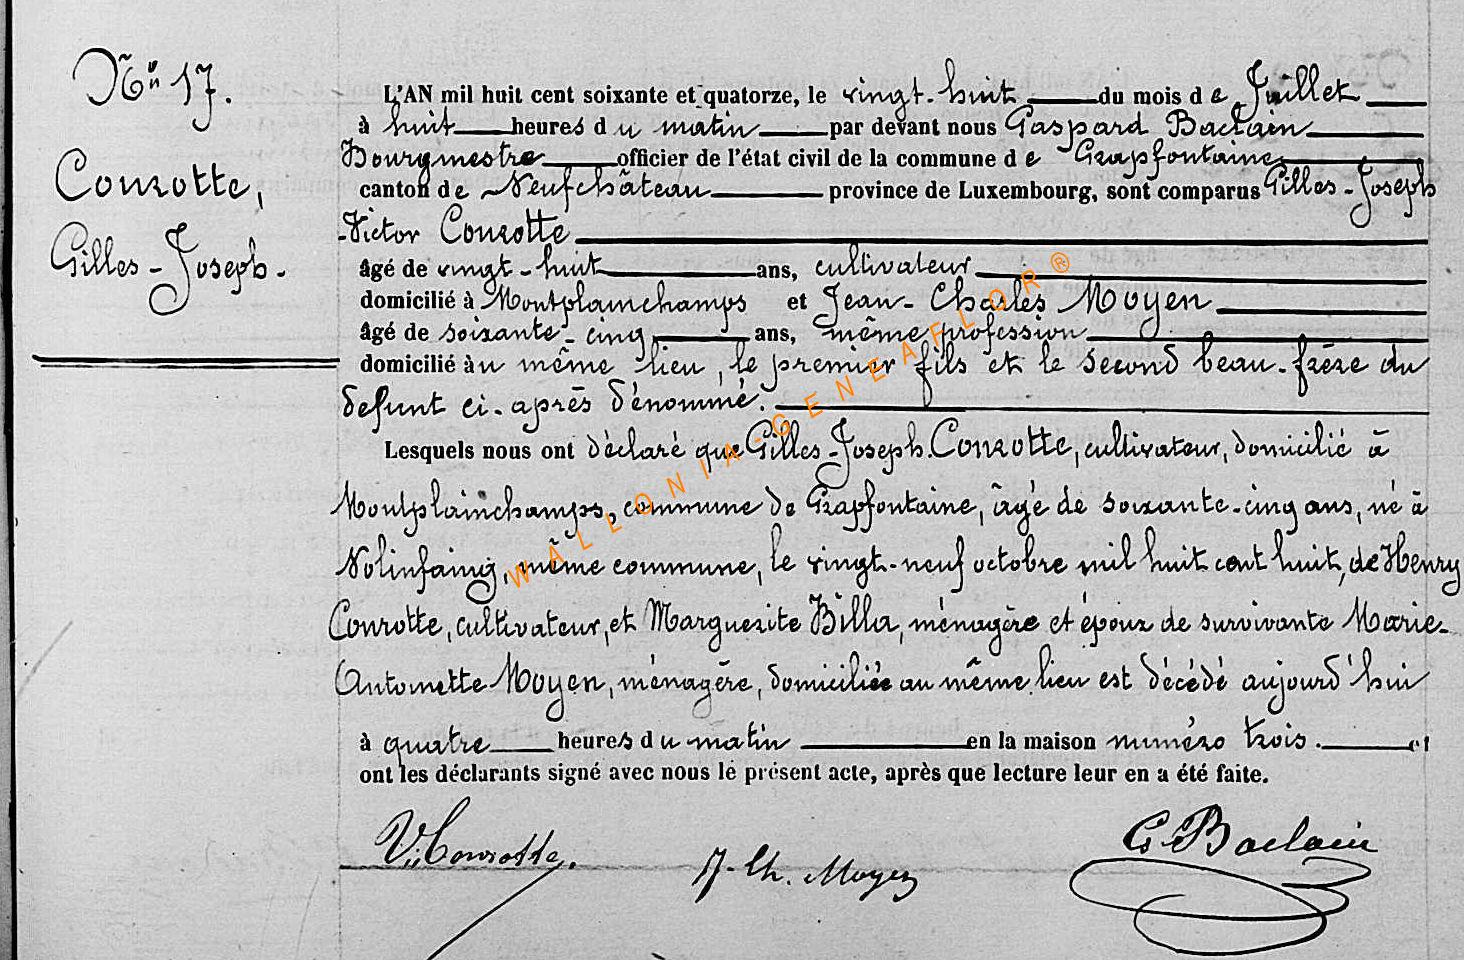 Nº 17.
Conrotte,
Gilles-Joseph.
L'AN mil huit cent soixante et quatorze, le vingt-huit du mois de Juillet
à huit heures du matin par devant nous Gaspard Baclain
Bourgmestre officier de l'état civil de la commune de Grapfontaine
canton de Neufchâteau province de Luxembourg, sont comparus Gilles-Joseph
-Victor Conrotte
âgé de vingt-huit ans, cultivateur
domicilié à Montplainchamps et Jean-Charles Moyen
âgé de soixante-cinq ans, même profession
domicilié au même lieu, le premier fils et le second beau-frère du
défunt ci-après dénommé.
Lesquels nous ont déclaré que Gilles-Joseph Conrotte, cultivateur, domicilié à
Montplainchamps, commune de Grapfontaine, âgé de soixante-cinq ans, né à
Nolinfaing, même commune, le vingt-neuf octobre mil huit cent huit, de Henry
Conrotte, cultivateur, et Marguerite Billa, ménagère et époux de survivante Marie-
Antoinette Moyen, ménagère, domiciliée au même lieu est décédé aujourd'hui
à quatre heures du matin en la maison numéro trois. et
ont les déclarants signé avec nous le présent acte, après que lecture leur en a été faite.
V. Conrotte. J. Ch. Moyen G. Baclain
WALLONIA-GENEAFLOR®